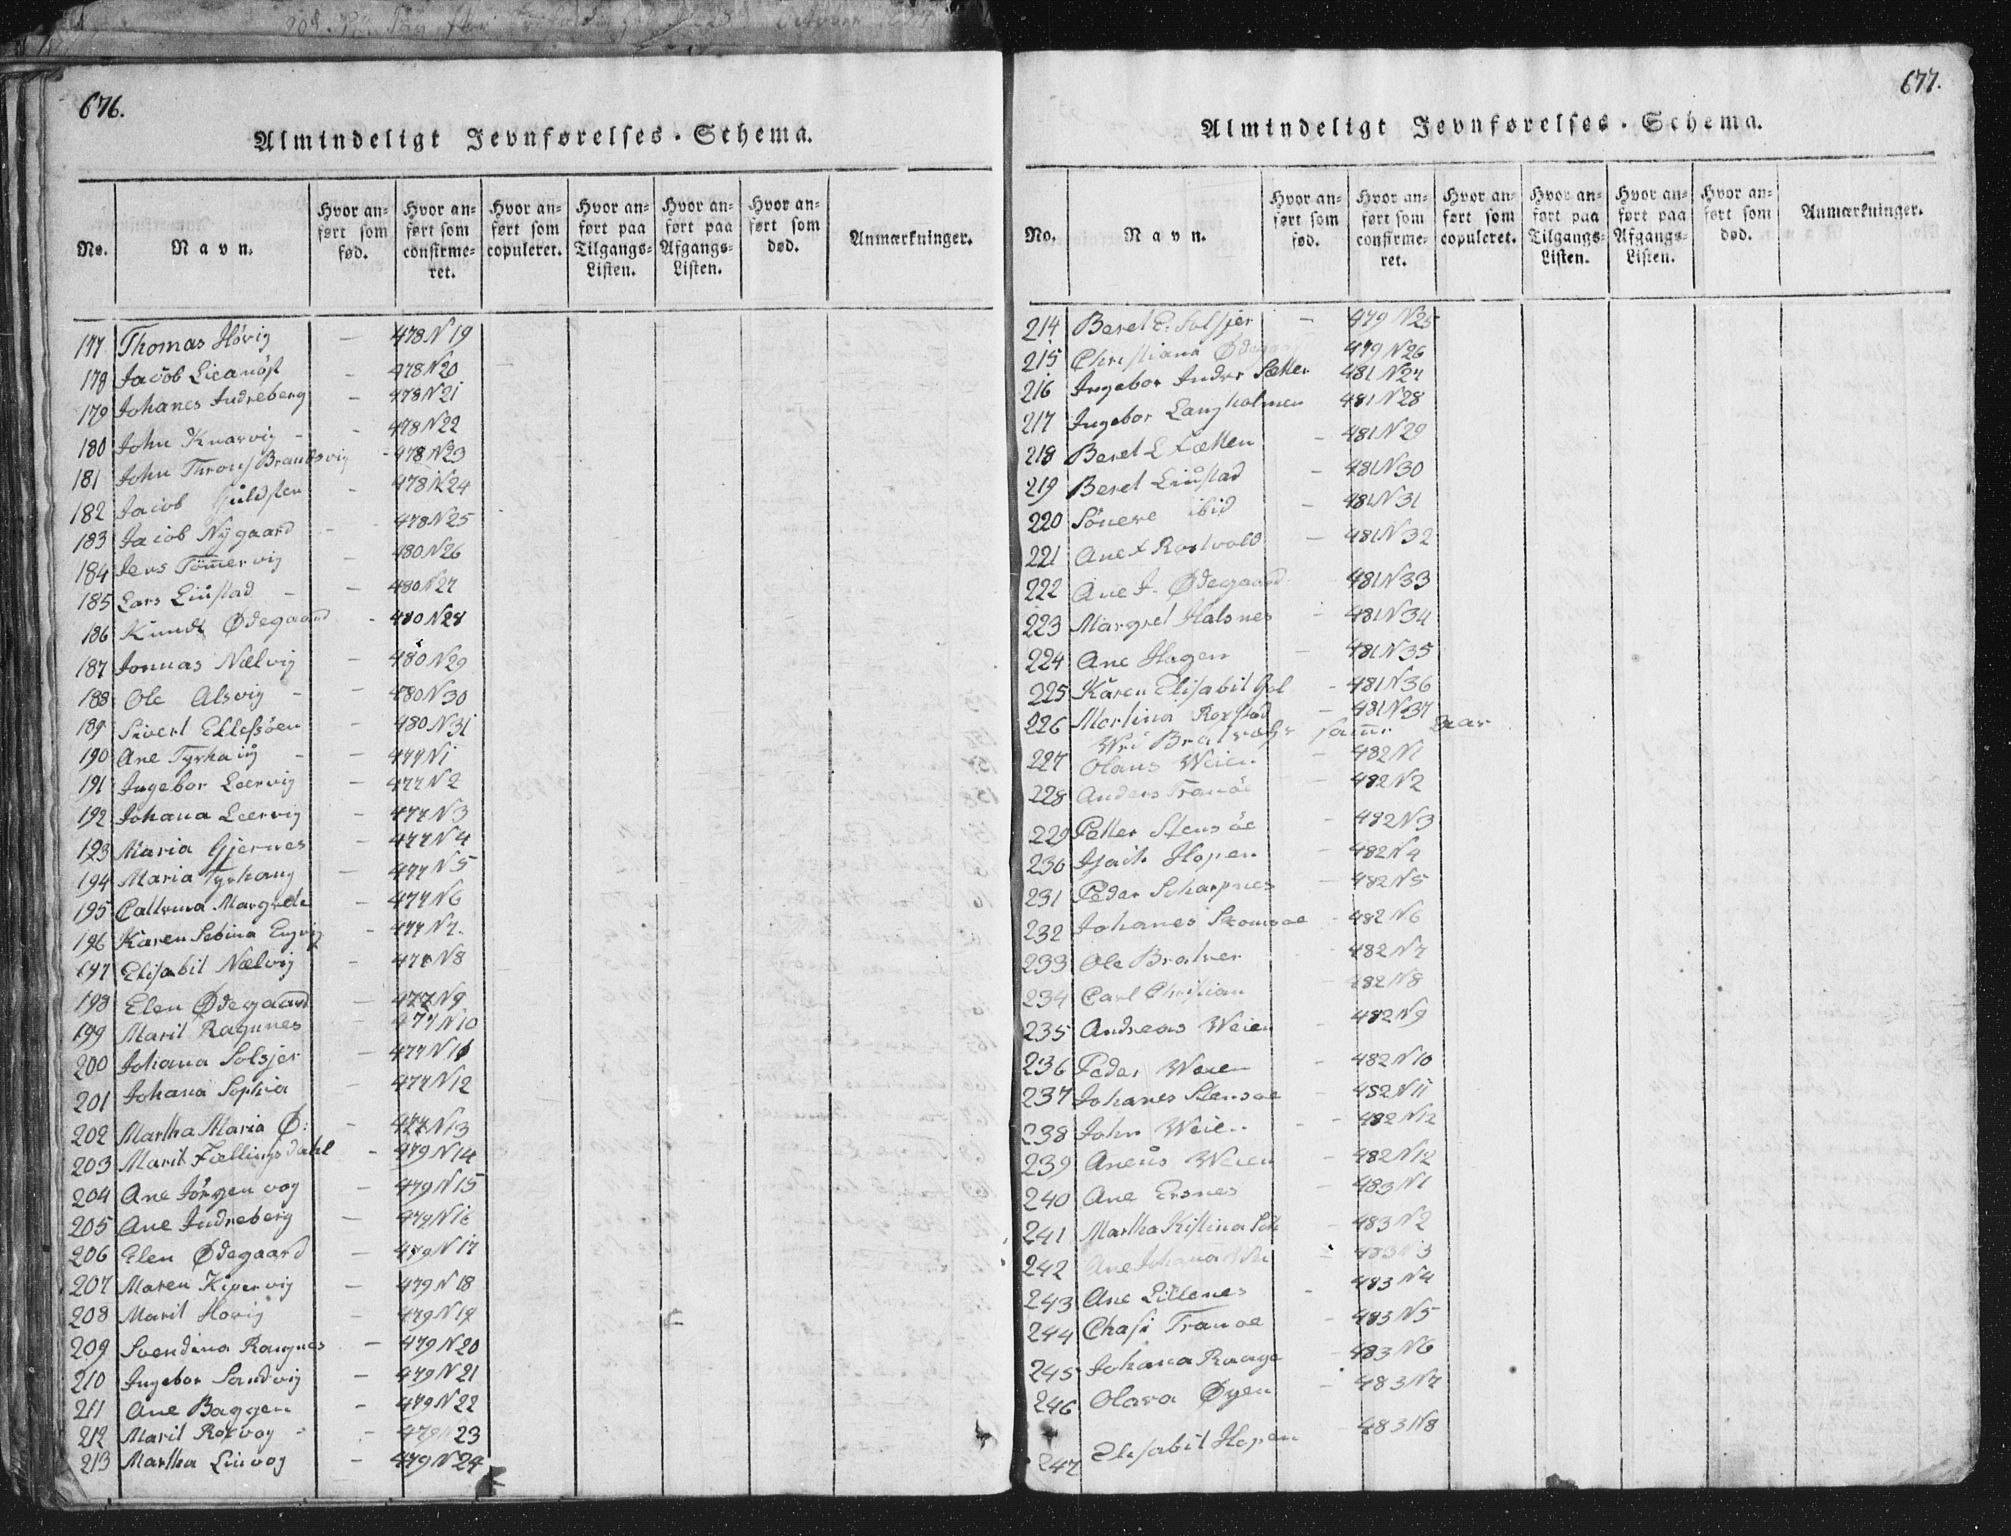 676.
Almindeligt Jevnførelses-Schema.
No. Navn. Hvor anført som fød. Hvor anført som confirmeret. Hvor anført som copuleret. Hvor anført paa Tilgangs-Listen. Hvor anført paa Afgangs-Listen. Hvor anført som død. Anmærkninger.
177 Thomas Hövig — 478 N 19
178 Jacob — 478 N 20
179 Johanes Indreberg — 478 N 21
180 John Knarvig — 478 N 22
181 John - 478 N 23
182 Jacob Guldsten - 478 N 24
183 Jacob Nÿgaard - 478 N 25
184 Jens Tömervig — 480 N 26
185 Lars Liustad — 480 N 27
186 Knudt Ødegaard - 480 N 28
187 Jonnas Nælvig — 480 N 29
188 Ole Alsvig — 480 N 30
189 Sivert Ellefsöen — 480 N 31
190 Ane — 477 N 1
191 Ingebor Leervig — 477 N 2
192 Johana Leervig — 477 N 3
193 Maria Gjernes — 477 N 4
194 Maria Tyrhaug — 477 N 5
195 Cattrina Margrete — 477 N 6
196 Karen Sebina Engvig - 477 N 7.
197 Elisabit Nælvig — 477 N 8
198 Elen Ødegaard — 477 N 9
199 Marit Ragnnes — 477 N 10
200 Johana Solsjer — 477 N 11
201 Johana Sophia — 477 N 12
202 Martha Maria Ø: — 477 N 13
203 Marit Fællingsdahl - 479 N 14
204 Ane Jörgenvog — 479 N 15
205 Ane Indreberg — 479 N 16
206 Elen Ødegaard — 479 N 17
207 Maren Kipervig — 479 N 18
208 Marit Hovig — 479 N 19
209 Svendina Rangnes — 479 N 20
210 Ingebor Sandvig — 479 N 21
211 Ane Baggen — 479 N 22
212 Marit Roxvog - 479 N 23
213 Martha Liuvog — 479 N 24
677.
Almindeligt Jevnførelses-Schema.
No. Navn. Hvor anført som fød. Hvor anført som confirmeret. Hvor anført som copuleret. Hvor anført paa Tilgangs-Listen. Hvor anført paa Afgangs-Listen. Hvor anført som død. Anmærkninger.
214 Beret E: Solsjer — 479 N 25
215 Christiana 479 N 26
216 Ingebor Indre Sætter 481 N 27
217 Ingebor Langholmen 481 N 28
218 Beret L - 481 N 29
219 Beret Liustad - 481 N 30
220 Sönere ibid - 481 N 31
221 Ane Rostvold - 481 N 32
222 Ane J. Ødegaard 481 N 33
223 Margret Halsnes - 481 N 34
224 Ane Hagen — 481 N 35
225 Karen Elisabit - 481 N 36
226 Mortina - 481 N 37
Wed samme aar
227 Olaus Weien — 482 N 1
228 Anders Tranöe 482 N 2
229 Petter Stensöe — 482 N 3
230 Hopen - 482 N 4
231 Peder Scharpnes — 482 N 5
232 Johanes - 482 N 6
233 Ole Bratver 482 N 7
234 Carl Christian - 482 N 8
235 Andreas Weien - 482 N 9
236 Peder Weien - 482 N 10
237 Johanes Stensoe - 482 N 11
238 John Weien - 482 N 12
239 Aneüs Weien - 482 N 12
240 Ane Ersnes - 483 N 1
241 Martha Kistina - 483 N 2
242 Ane Johana - 483 N 3
243 Ane Lillenes - 483 N 4
244 Tranoe - 483 N 5
245 Johana Raage - 483 N 6
246 Olava Øyen - 483 N 7
247 Elisabit Hopen 483 N 8